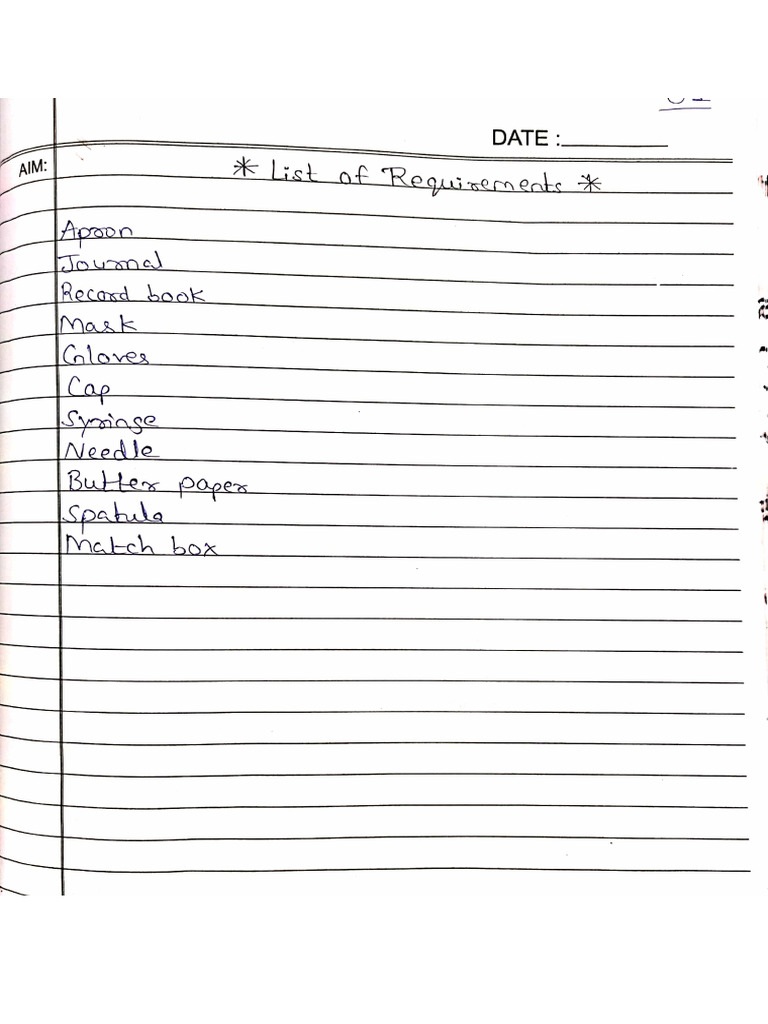 DATE :
AIM:
* List of Requirements *
Apron
Journal
Record book
Mask
Gloves
Cap
Syringe
Needle
Butter paper
Spatula
Match box